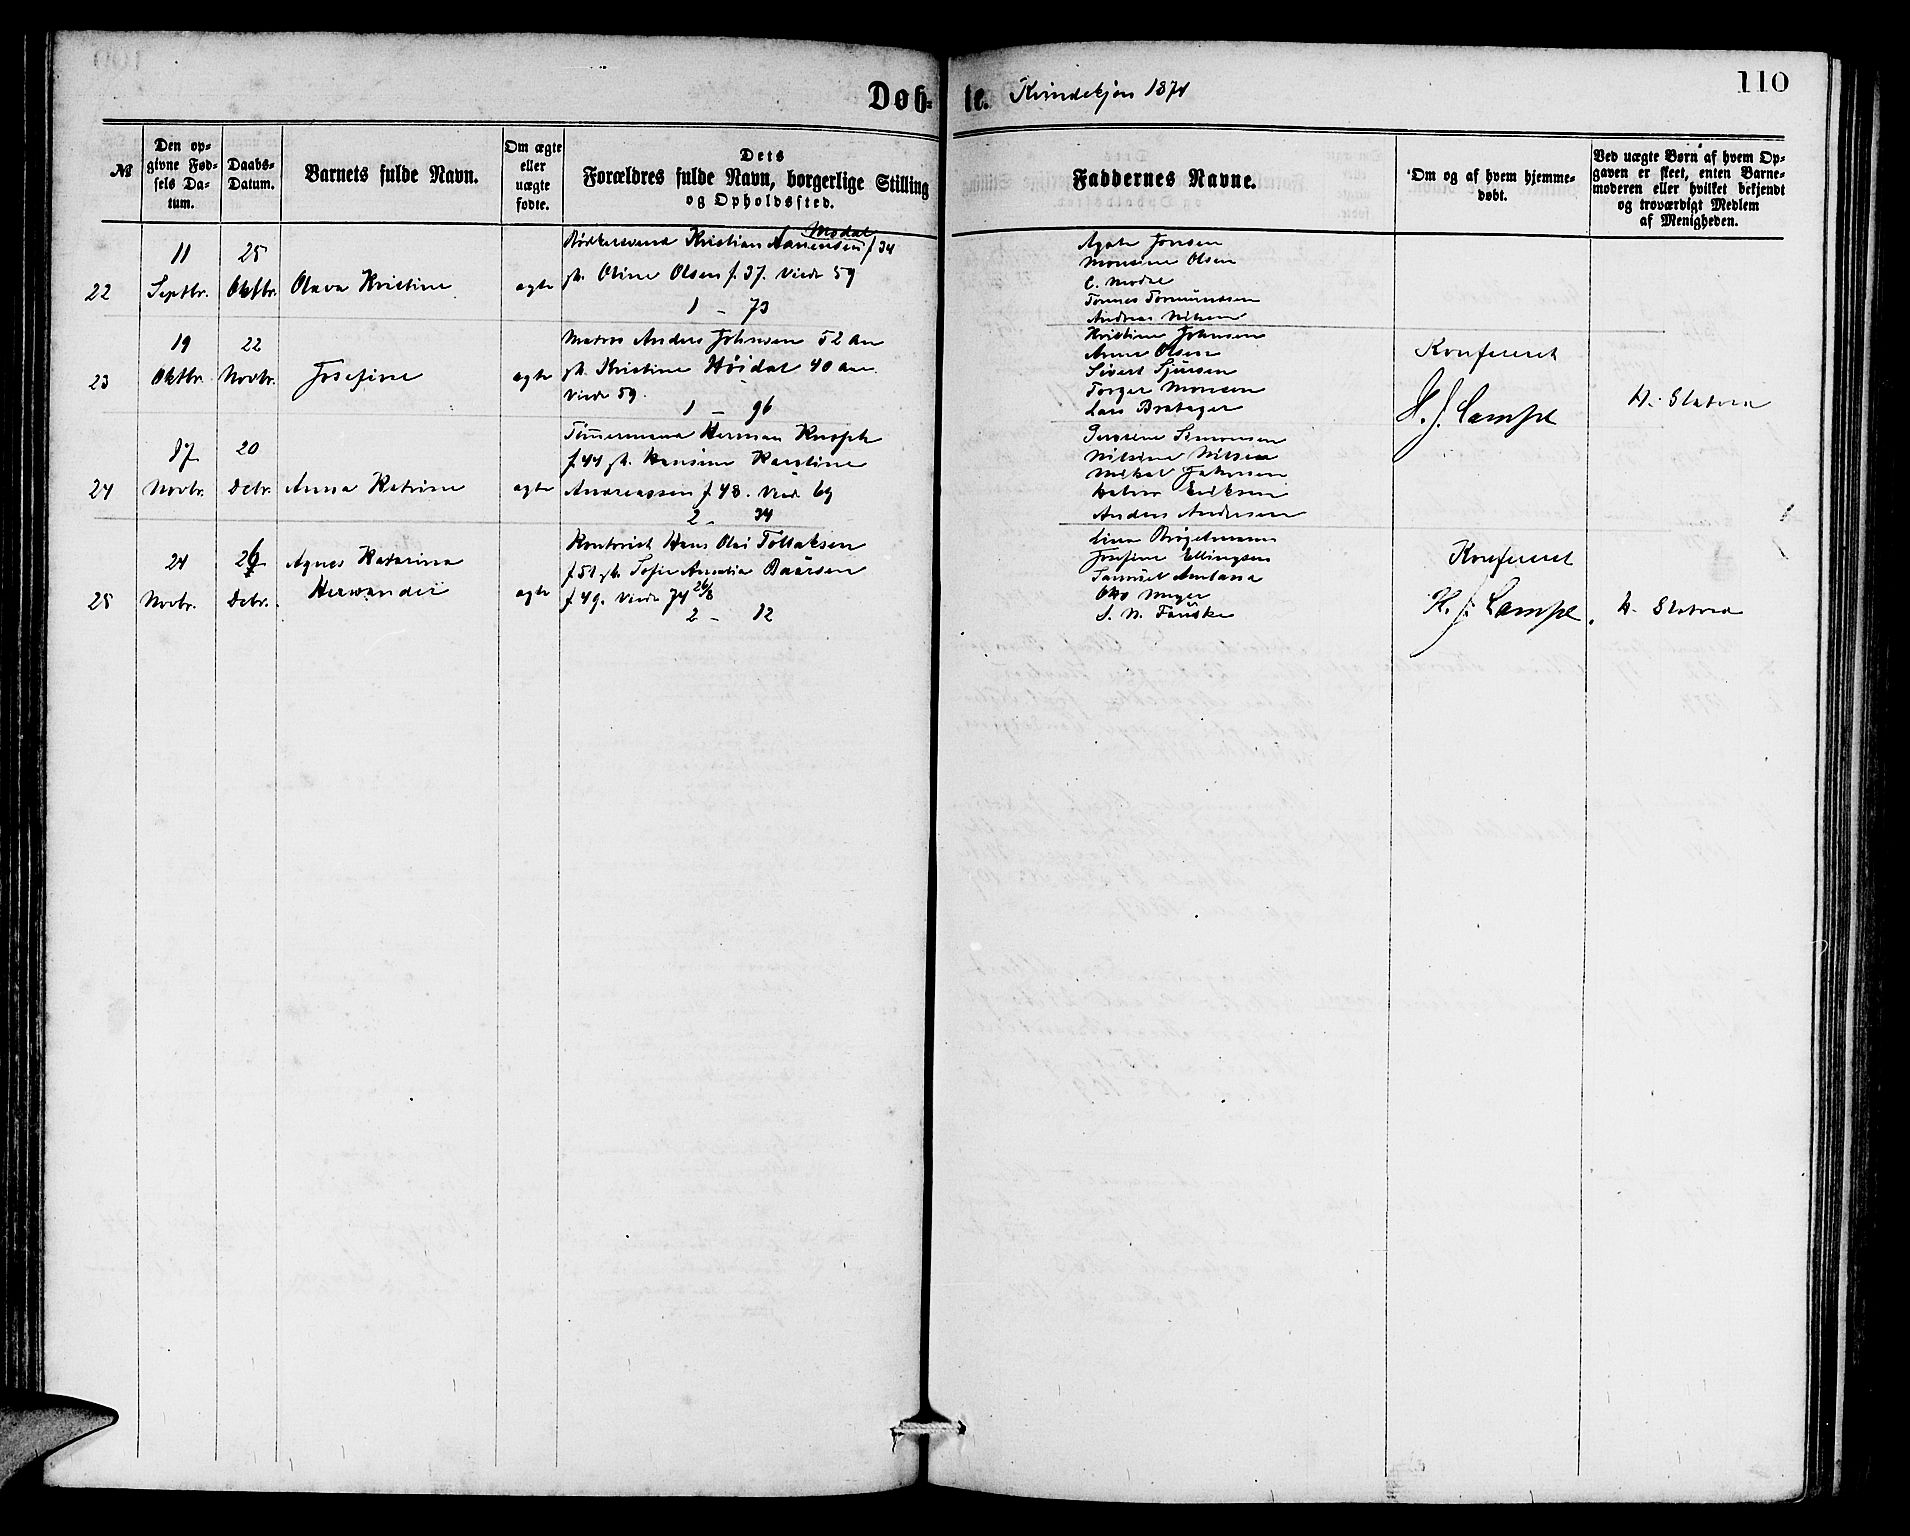 110
Døb- te. Kvindekjøn 1874
№
Den op-
givne Fød-
sels Da-
tum.
Daabs-
Datum.
Barnets fulde Navn.
Om ægte
eller
uægte
fødte.
Dets
Forældres fulde Navn, borgerlige Stilling
og Opholdssted.
Faddernes Navne.
Om og af hvem hjemme-
døbt.
Ved uægte Børn af hvem Op-
gaven er skeet, enten Barne-
moderen eller hvilket bekjendt
og troværdigt Medlem
af Menigheden.
22
11
Septbr.
25
Oktbr.
Olava Kristine
ægte
Kristian f 34
gh. Oline Olsen f. 37. Viede 59
1 - 73
Agate Jonsen
Monsine Olsen
Andreas Nilsen
23
19
Oktbr.
22
Novbr.
Josefine
ægte
Matros Anders Johnsen 52 Aar
gh. Kristine Høidal 40 aar.
Viede 59.
1 - 96
Kristine Johnsen
Anne Olsen
Sivert Sjursen
Torger Monsen
Lars Bratager
Konfereret
H. J. Lampe
24
17
Novbr.
20
Decbr.
Anna Katrine
ægte
Tømmermand Herman
f 44 gh. Hansine Karoline
Andreassen f 48. Viede 69
2 - 34
Simonsen
Nilsine Nilsen
Mikal Johnsen
Eriksen
Anders Andersen
25
24
Novbr.
26
Decbr.
Agnes Katarina
ægte
Kontorist Hans Olai Tollaksen
f 51 gh. Sofie Amalia Baarsen
f 49. Viede 74 26/8
2 - 82
Lina Brøgelmann
Josefine Ellingsen
Samuel
Otto Meyer
S. N. Fauske
Konfereret
H. J. Lampe.